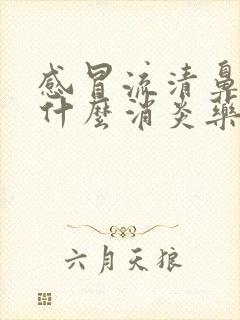 感冒流清鼻
什麼消炎藥
六月天狼